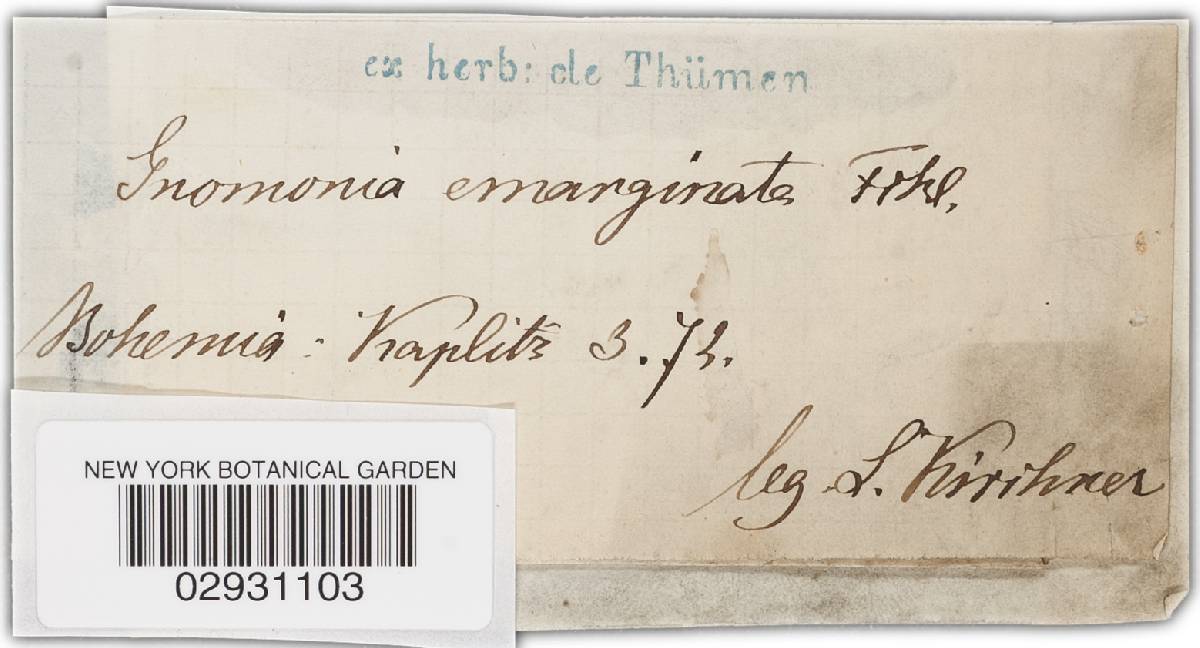 ex herb: de Thümen
Gnomonia emarginata Fckl.
Bohemia: Kaplitz 3.72.
leg. L. Kirchner
NEW YORK BOTANICAL GARDEN
02931103